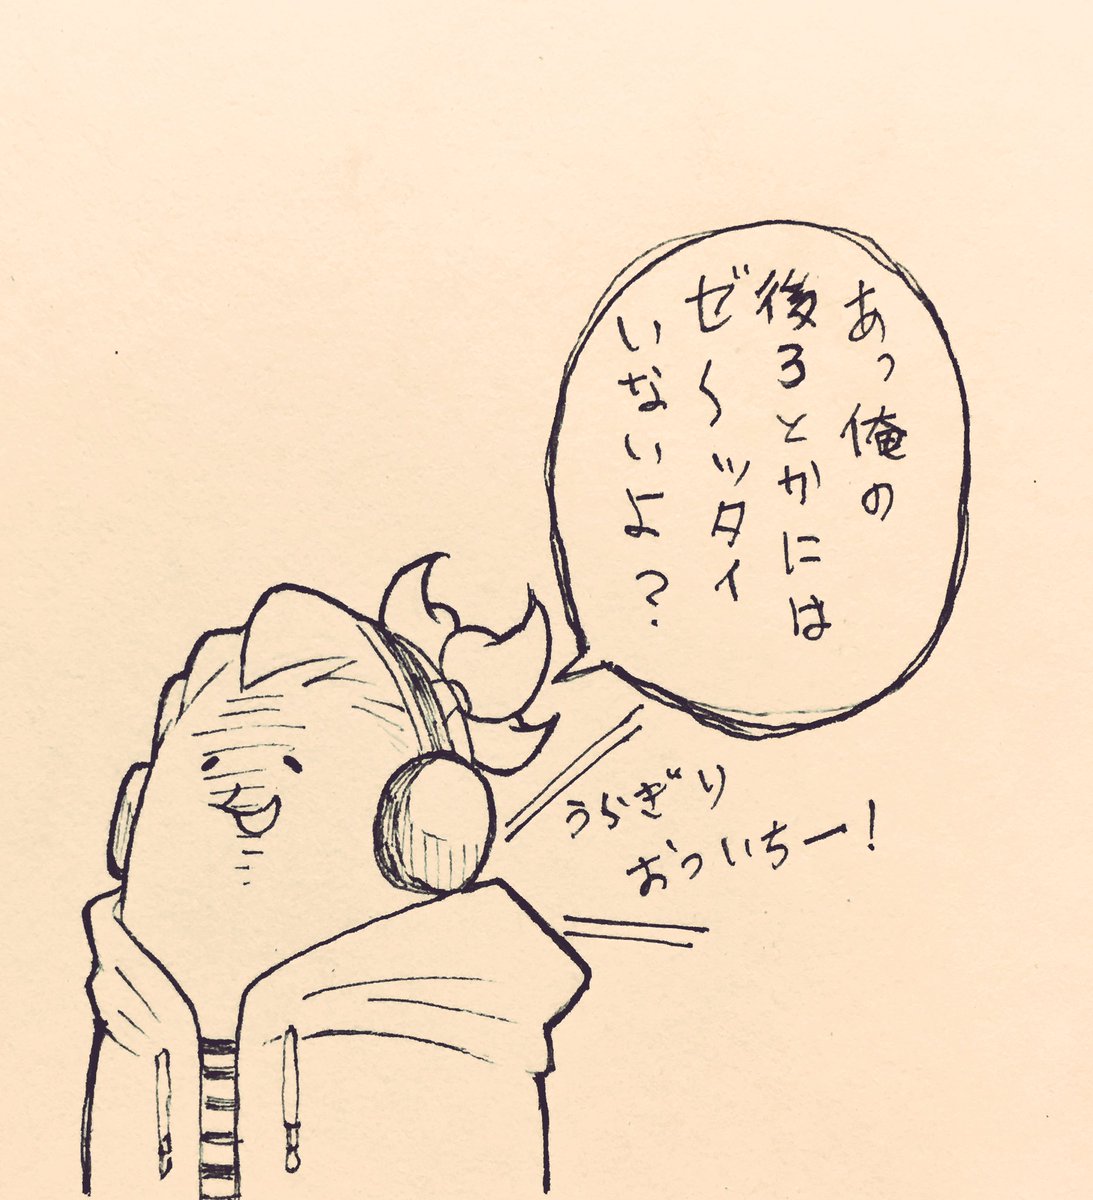 あっ俺の
後ろとかには
ゼ〜ッタイ
いないよ?
うらぎり
おっいちー!